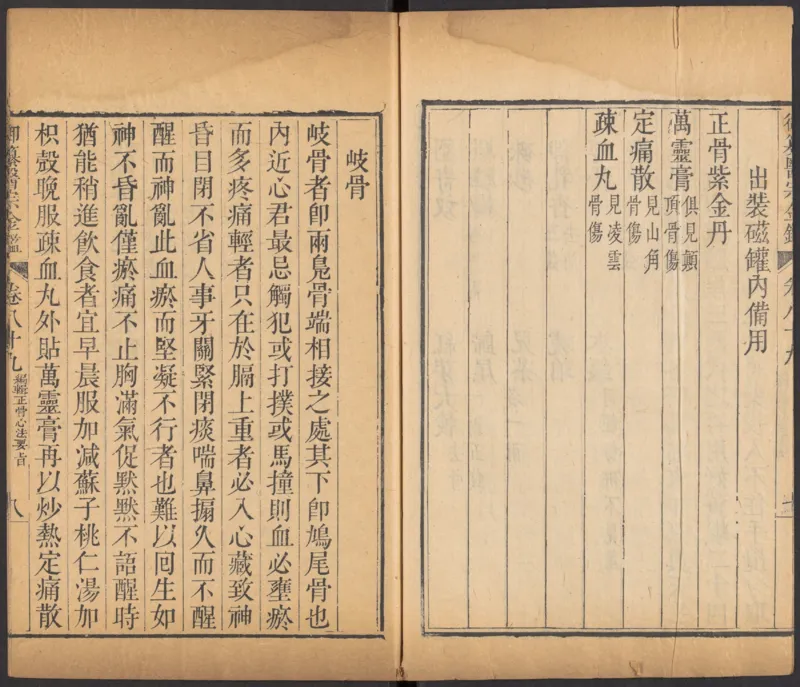 出裝磁罐內備用
正骨紫金丹
萬靈膏俱見顛頂骨傷
定痛散見山角骨傷
疎血丸見凌雲骨傷
岐骨
岐骨者卽兩鳧骨端相接之處其下卽鳩尾骨也
內近心君最忌觸犯或打撲或馬撞則血必壅瘀
而多疼痛輕者只在於膈上重者必入心藏致神
昏目閉不省人事牙關緊閉痰喘鼻搧久而不醒
醒而神亂此血瘀而堅凝不行者也難以回生如
神不昏亂僅瘀痛不止胸滿氣促默默不語醒時
猶能稍進飲食者宜早晨服加減蘇子桃仁湯加
枳殼晚服疎血丸外貼萬靈膏再以炒熱定痛散
御纂醫宗金鑑 卷八十九 編輯正骨心法要旨 八